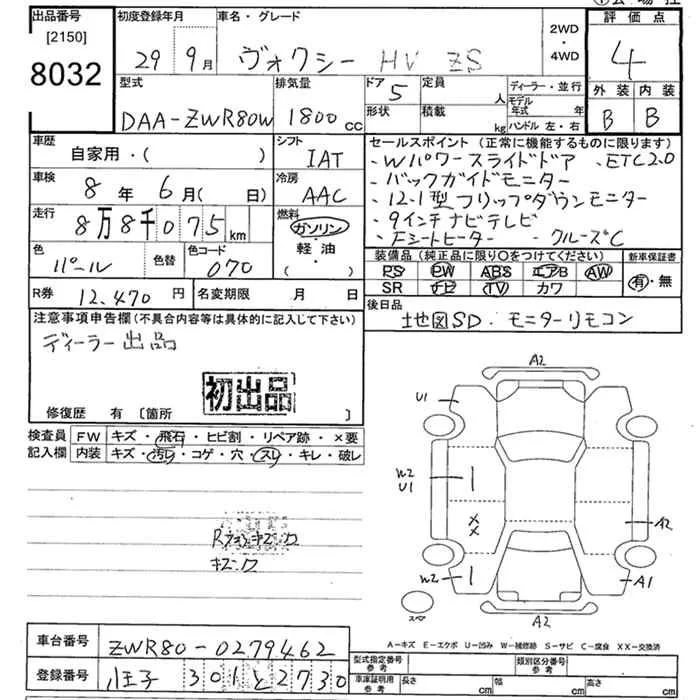 出品番号
[2150]
8032
初度登録年月
29 9月
車名・グレード
ヴォクシー HV ZS
2WD
・
4WD
評価点
4
外装 内装
B B
型式
DAA-ZWR80W
排気量
1800 cc
ドア 5
形状
定員 人
積載 kg
ディーラー・並行
モデル年式 年
ハンドル 左・右
車歴
自家用・( )
シフト
IAT
車検
8年 6月( 日)
冷房
AAC
走行
8万8千075km
燃料
ガソリン
・
軽・油
・
( )
色
パール
色替
色コード
070
R券 12,470円
名変期限 月 日
セールスポイント (正常に機能するものに限ります)
・Wパワースライドドア ・ETC2.0
・バックガイドモニター
・12.1型フリップダウンモニター
・9インチナビテレビ
・Fシートヒーター ・クルーズC
装備品 (純正品に限り○をつけてください)
PS PW ABS エアB AW
SR ナビ TV カワ
新車保証書
有・無
後日品
地図SD・モニターリモコン
注意事項申告欄(不具合内容等は具体的に記入して下さい)
ディーラー出品
初出品
修復歴 有 〔箇所 〕
検査員記入欄
FW キズ・飛石・ヒビ割・リペア跡・×要
内装 キズ・汚れ・コゲ・穴・スレ・キレ・破レ
キズ・ワ
A2
U1
W2
U1
XX
A2
W2
A1
スペア
A2
A-キズ E-エクボ U-凹み W-補修跡 S-サビ C-腐食 XX-交換済
車台番号
ZWR80-0279462
登録番号
八王子 301 と 2730
型式指定番号参考
類別区分番号参考
車庫証明用参考
長さ cm 幅 cm 高さ cm